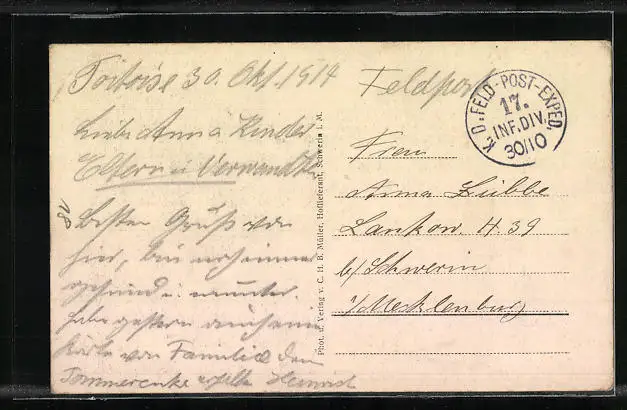 30. Okt. 1914
Feldpost
Liebe Anna Kinder
Eltern u Verwandte
Besten Gruß von
hier, bin noch immer
gesund u. munter.
Habe gestern
Karte von Familie
18
K. D. FELD-POST-EXPED.
17.
INF. DIV.
30/10
Frau
Anna Lübbe
Lankow. H. 39
b/Schwerin
i/Mecklenburg
Phot. u. Verlag v. C. H. B. Müller, Hoflieferant, Schwerin i. M.